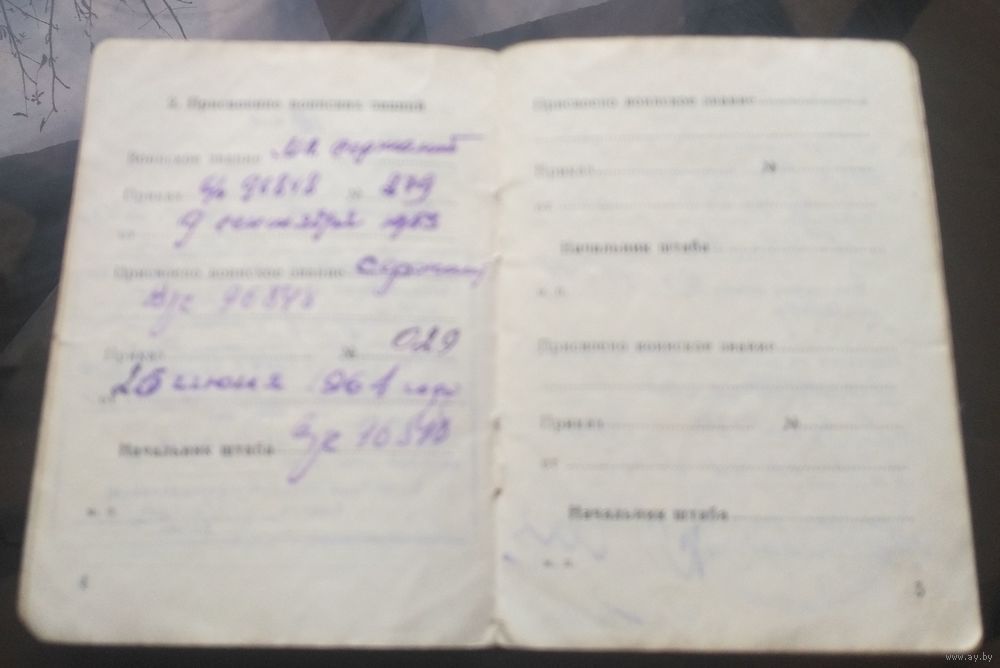 2. Присвоение воинских званий
Воинское звание Мл сержант
Приказ в/ч № 279
от 9 сентября
Присвоено воинское звание Сержант
в/ч
Приказ № 029
26 июля года
Начальник штаба в/ч
м. п.
4
Присвоено воинское звание
Приказ №
от
Начальник штаба
м. п.
Присвоено воинское звание
Приказ №
от
Начальник штаба
м. п.
5
www.ay.by